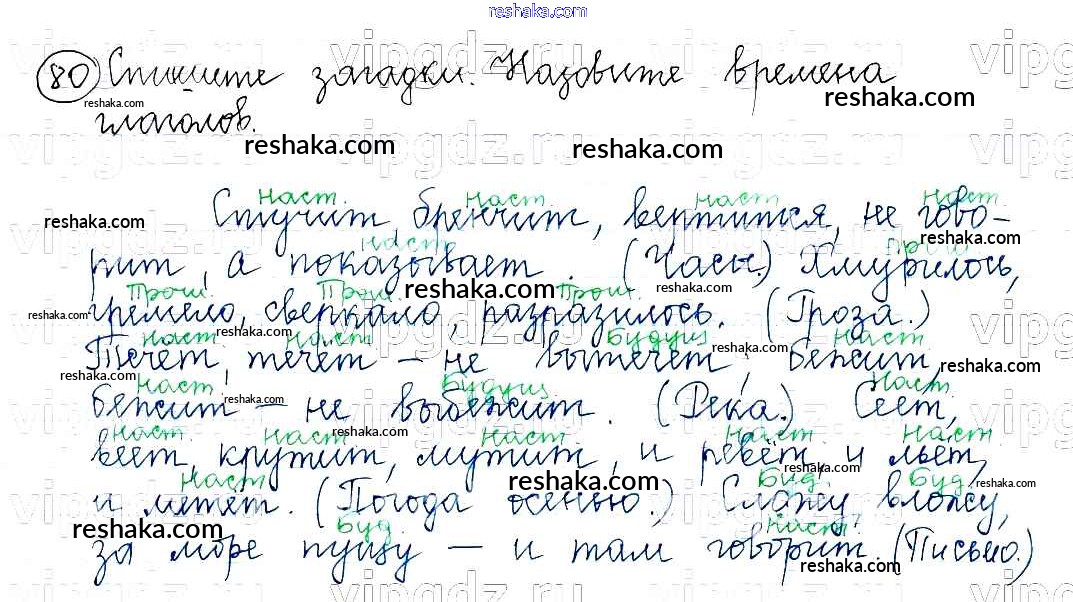 reshaka.com
80 Спишите загадки. Назовите времена
reshaka.com reshaka.com
глаголов.
reshaka.com reshaka.com
vipgdz.ru vipgdz.ru vipgdz.ru
наст. наст. наст. наст.
reshaka.com Стучит, бренчит, вертится, не гово-
reshaka.com
наст прош
рит, а показывает. (Часы.) Хмурилось,
reshaka.com reshaka.com
Прош. Прош. Прош.
reshaka.com гремело, сверкало, разразилось. (Гроза.)
reshaka.com
наст наст Будущ наст
Течёт, течёт – не вытечет, бежит,
reshaka.com reshaka.com
наст Будущ Наст
бежит – не выбежит. (Река.) Сеет,
reshaka.com reshaka.com
наст. наст наст наст наст
веет, крутит, мутит, и ревёт, и льёт,
reshaka.com reshaka.com
Наст Буд. Буд.
и метёт. (Погода осенью.) Сложу, вложу,
reshaka.com reshaka.com
Буд. наст.
за море пущу – и там говорит. (Письмо.)
reshaka.com reshaka.com